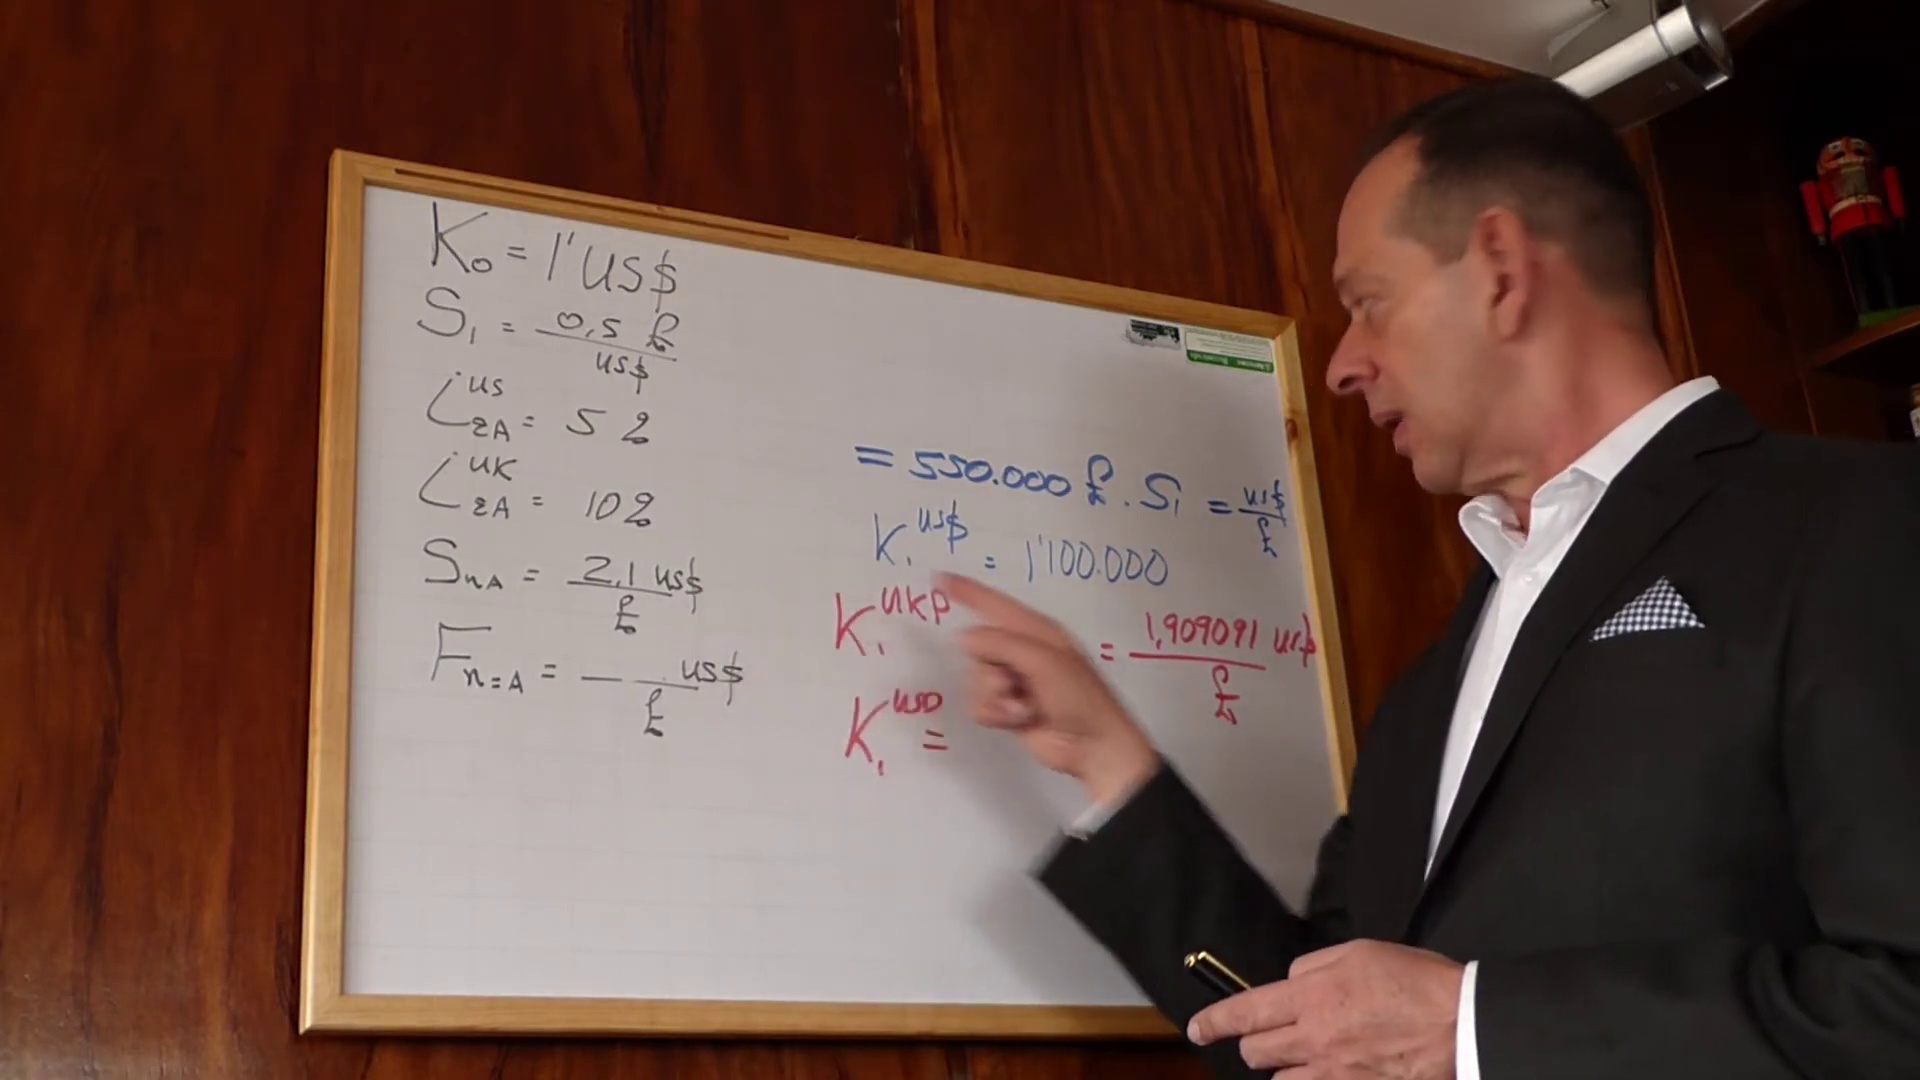 K₀ = 1' US$
S₁ = 0,5 £ / US$
i US ΣA = 5 %
i UK ΣA = 10 %
S nA = 2,1 US$ / £
F n=A = _ _ US$ / £
= 550.000 £ . S₁ = US$ / £
K₁ US$ = 1'100.000
K₁ UKP = 1,909091 US$ / £
K₁ USD =